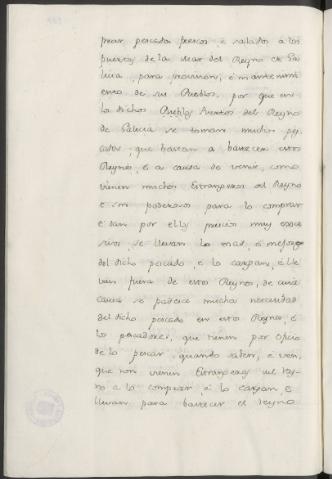 prar pescado fresco, è salado à los
puertos de la mar del Reyno de Ga
licia, para provision, è mantenimi
ento de sus Pueblos, por que en
los dichos Pueblos Puertos del Reyno
de Galicia se toman muchos pes
cados, que bastan à bastecer estos
Reynos, è à causa de venir, como
vienen muchos Extrangeros del Reyno
è son poderosos para lo comprar
è dan por ellos precios muy exce
sivos, se llevan lo mas, è mejor
del dicho pescado, è lo cargan, è lle
van fuera de estos Reynos, de cuia
causa se padece mucha necesidad
del dicho pescado en estos Reynos, è
los pescadores, que tienen por oficio
de lo pescar, quando salen, è ven,
que non vienen Extrangeros del Rey-
no à lo comprar, è lo cargan, è
llevan para bastecer el reyno